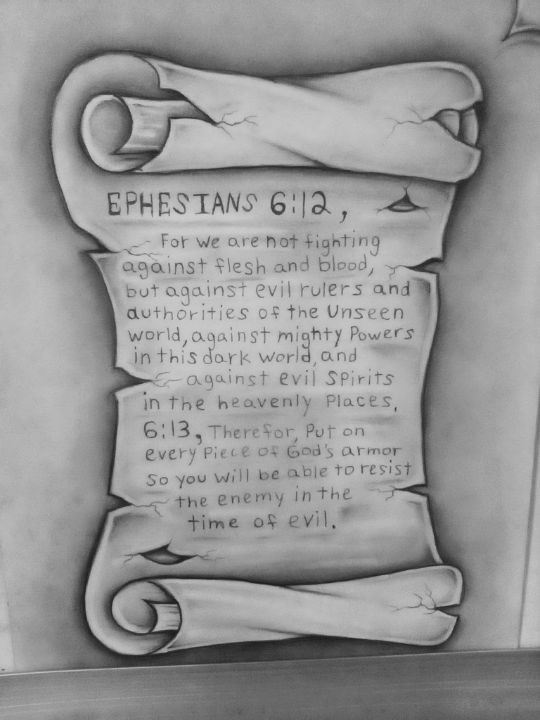 EPHESIANS 6:12,
For we are not fighting
against flesh and blood,
but against evil rulers and
authorities of the Unseen
world, against mighty Powers
in this dark world, and
against evil SPirits
in the heavenly Places,
6:13, Therefor, Put on
every Piece of God's armor
So you will be able to resist
the enemy in the
time of evil.